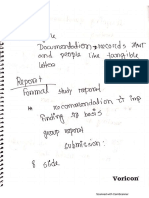 Documentation, records
and people like tangible
letter
Report
Formal study report
recommendation & imp
finding is basis
group report
submission:
8 slide
Voricon